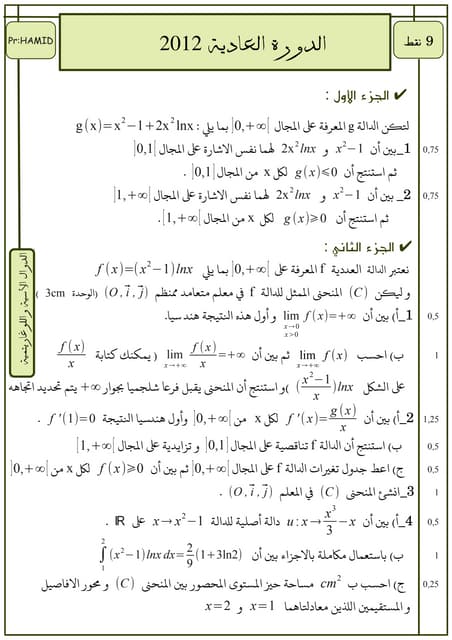 Pr:HAMID
الدورة العادية 2012
9 نقط
✔ الجزء الاول :
لتكن الدالة g المعرفة على المجال ]0,+∞[ بما يلي : g(x)=x²−1+2x²lnx
0,75
1_بين أن x²−1 و 2x²lnx لهما نفس الاشارة على المجال ]0,1]
ثم استنتج أن g(x)≤0 لكل x من المجال ]0,1] .
0,75
2_ بين أن x²−1 و 2x²lnx لهما نفس الاشارة على المجال [1,+∞[
ثم استنتج أن g(x)≥0 لكل x من المجال [1,+∞[ .
✔ الجزء الثاني :
نعتبر الدالة العددية f المعرفة على ]0,+∞[ بما يلي f(x)=(x²−1)lnx
وليكن (C) المنحنى الممثل للدالة f في معلم متعامد ممنظم (O,i⃗,j⃗) (الوحدة 3cm )
0,5
1_أ) بين أن lim x→0 x>0 f(x)=+∞ و أول هذه النتيجة هندسيا.
1
ب) احسب lim x→+∞ f(x) ثم بين أن lim x→+∞ f(x)/x=+∞ ( يمكنك كتابة f(x)/x
على الشكل ((x²−1)/x)lnx )و استنتج أن المنحنى يقبل فرعا شلجميا بجوار +∞ يتم تحديد اتجاهه
1,25
2_أ) بين أن f'(x)=g(x)/x لكل x من ]0,+∞[ وأول هندسيا النتيجة f'(1)=0 .
0,5
ب) استنتج أن الدالة f تناقصية على المجال ]0,1] و تزايدية على المجال [1,+∞[
0,5
ج) اعط جدول تغيرات الدالة f على المجال ]0,+∞[ ثم بين أن f(x)≥0 لكل x من ]0,+∞[
1
3_انشئ المنحنى (C) في المعلم (O,i⃗,j⃗) .
0,5
4_أ) بين أن u:x→x³/3−x دالة أصلية للدالة x→x²−1 على ℝ .
1
ب) باستعمال مكاملة بالاجزاء بين أن ∫₁²(x²−1)lnx dx=2/9(1+3ln2)
0,25
ج) احسب ب cm² مساحة حيز المستوى المحصور بين المنحنى (C) و محور الافاصيل
و المستقيمين اللذين معادلتاهما x=1 و x=2
الدوال الأسية و اللوغاريتمية